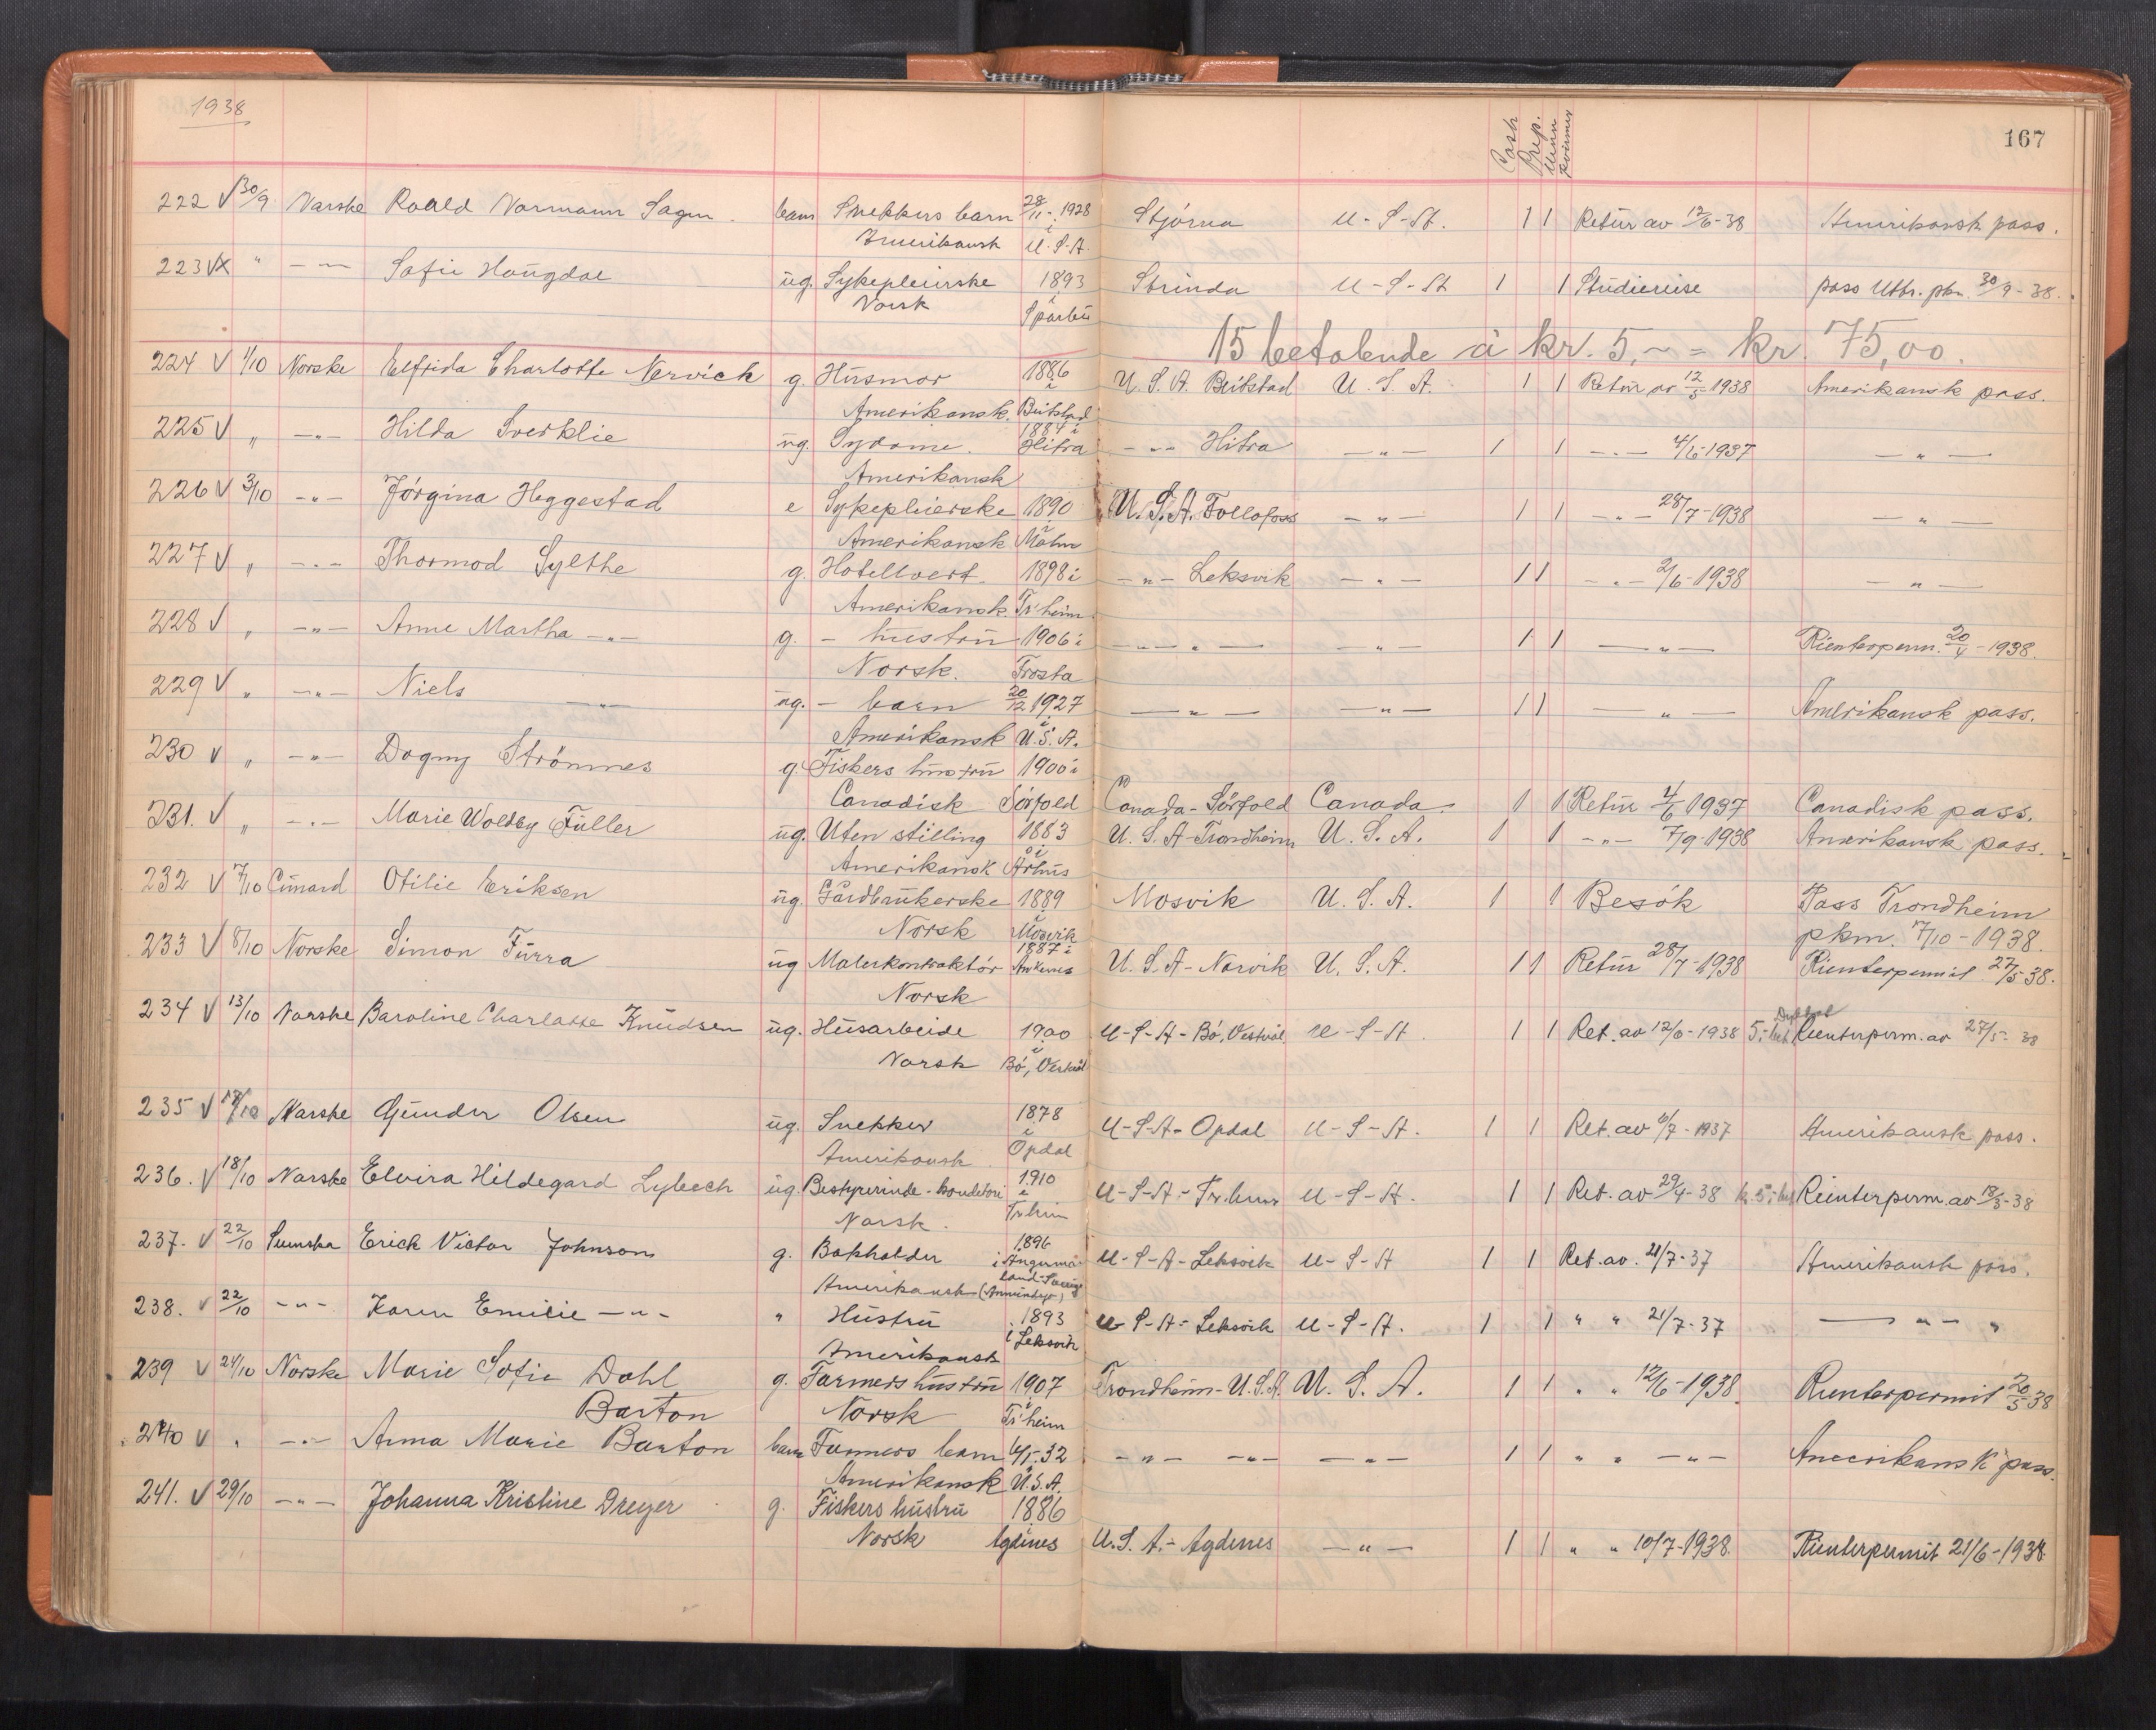 1938
Cash Prep. Menn Kvinner
167
222 V 30/9 Norske Roald Normann Sagen barn Snekkers barn 28/11-1928 Stjórna U-S-A. 1 1 Retur av 12/6-38 Amerikansk pass.
Amerikansk i U.S.A.
223 VX " -"- Sofie Haugdal ug. Sykepleierske 1893 Strinda U-S-A 1 1 Studiereise pass Utbr. pkm. 30/9-38.
Norsk i Sparbu
15 betalende à kr. 5,- = kr. 75,00.
224 V 1/10 Norske Elfrida Charlotte Nervick g. Husmor 1886 U.S.A. Beitstad U.S.A. 1 1 Retur av 12/5 1938 Amerikansk pass.
Amerikansk i Beitstad
225 V " -"- Hilda Sverklie ug. Sydame. 1884 i Hitra -"- Hitra -"- 1 1 -"- 4/6-1937 -"-
Amerikansk
226 V 3/10 -"- Jórgina Heggestad e Sykepleierske 1890 U.S.A. Follafoss -"- 1 1 -"- 28/7-1938 -"-
Amerikansk i Malm
227 V " -"- Thormod Sylthe g. Hotellvert. 1898 i -"- Leksvik -"- 1 1 -"- 2/6-1938 -"-
Amerikansk. Tr.heim.
228 V " -"- Anne Martha -"- g. - hustru 1906 i -"- -"- -"- 1 1 -"- Rienterperm. 20/4-1938.
Norsk. Frosta
229 V " -"- Niels -"- ug. - barn 20/12 1927 -"- -"- 1 1 -"- Amerikansk pass.
Amerikansk i U.S.A.
230 V " -"- Dagny Strömnes g. Fiskers hustru 1900 i
Canadisk Sörfold Canada-Sörfold Canada. 1 1 Retur 4/6 1937 Canadisk pass.
231. V " -"- Marie Woldsy Füller ug. Uten stilling 1883 U.S.A-Trondheim U.S.A. 1 1 -"- 7/9-1938 Amerikansk pass.
Amerikansk i Århus
232 V 7/10 Cunard Otilie Eriksen ug. Gårdbrukerske 1889 Mosvik U.S.A. 1 1 Besók Pass Trondheim
Norsk i Mosvik pkm. 7/10-1938.
233 V 8/10 Norske Simon Furra ug Malerkontraktór 1887 i Ankenes U.S.A-Narvik U.S.A. 1 1 Retur 28/7-1938 Rienterpermit 27/5-38.
Norsk
234 V 13/10 Norske Baroline Charlotte Knudsen ug. Husarbeide 1900 U-S-A-Bó, Vesterål U-S-A 1 1 Ret. av 12/6-1938 5,- bet. Rienterperm. av 27/5-38
Norsk i Bó, Vesterål
235 V 17/10 Norske Gunder Olsen ug. Snekker 1878 U-S-A-Opdal U-S-A. 1 1 Ret. av 6/7-1937 Amerikansk pass.
Amerikansk i Opdal
236. V 18/10 Norske Elvira Hildegard Lybeech ug. Bestyrerinde-konditori 1910 U-S-A-Tr.heim U-S-A. 1 1 Ret. av 29/4-38 kr. 5,- bet Rienterperm. av 18/3-38
Norsk. i Tr.heim
237. V 22/10 Svenska Erick Victor Johnson g. Bokholder 1896 U-S-A-Leksvik U-S-A 1 1 Ret. av. 21/7-37 Amerikansk pass.
Amerikansk i Ångermanland-Sverige
238. V 22/10 -"- Karen Emilie -"- " Hustru 1893 U-S-A-Leksvik U-S-A. 1 1 " " 21/7-37 -"- "
Amerikansk i Leksvik
239 V 24/10 Norske Marie Sofie Dahl g. Farmers hustru 1907 Trondheim-U.S.A. U.S.A. 1 1 " " 12/6-1938. Rienterpermit 20/5-38
Barton Norsk i Tr.heim
240 V " -"- Anna Marie Barton barn Farmers barn 4/5-32 -"- -"- -"- 1 1 " " -"- Amerikansk pass.
Amerikansk U.S.A.
241. V 29/10 -"- Johanna Kristine Dreyer g. Fiskers hustru 1886
Norsk i Agdenes U.S.A.-Agdenes -"- 1 1 " " 10/7-1938. Rienterpermit 21/6-1938.